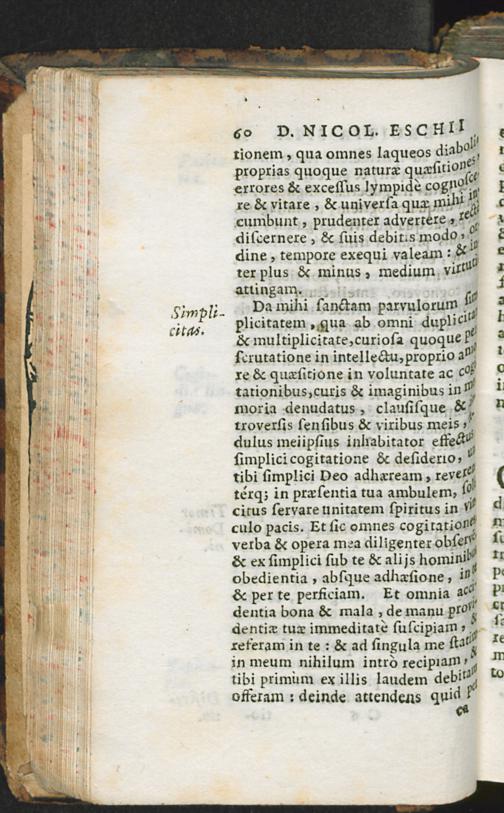 60 D. NICOL. ESCHII
tionem, qua omnes laqueos diaboli,
proprias quoque naturæ quæsitiones,
errores & excessus lympidè cognosce-
re & vitare, & universa quæ mihi in-
cumbunt, prudenter advertere, rectè
discernere, & suis debitis modo, or-
dine, tempore exequi valeam: & in-
ter plus & minus, medium virtutis
attingam.
Simpli-
citas.
Da mihi sanctam parvulorum sim-
plicitatem, qua ab omni duplicitate
& multiplicitate, curiosa quoque per-
scrutatione in intellectu, proprio amo-
re & quæsitione in voluntate ac cogi-
tationibus, curis & imaginibus in me-
moria denudatus, clausisque &
troversis sensibus & viribus meis,
dulus meiipsius inhabitator effectus
simplici cogitatione & desiderio,
tibi simplici Deo adhæream, reveren-
térq; in præsentia tua ambulem, soli-
citus servare unitatem spiritus in vin-
culo pacis. Et sic omnes cogitationes
verba & opera mea diligenter observo
& ex simplici sub te & alijs hominibus
obedientia, absque adhæsione, in te
& per te perficiam. Et omnia acci-
dentia bona & mala, de manu provi-
dentiæ tuæ immeditatè suscipiam, &
referam in te: & ad singula me statim
in meum nihilum intrò recipiam, &
tibi primùm ex illis laudem debitam
offeram: deinde attendens quid per
ea